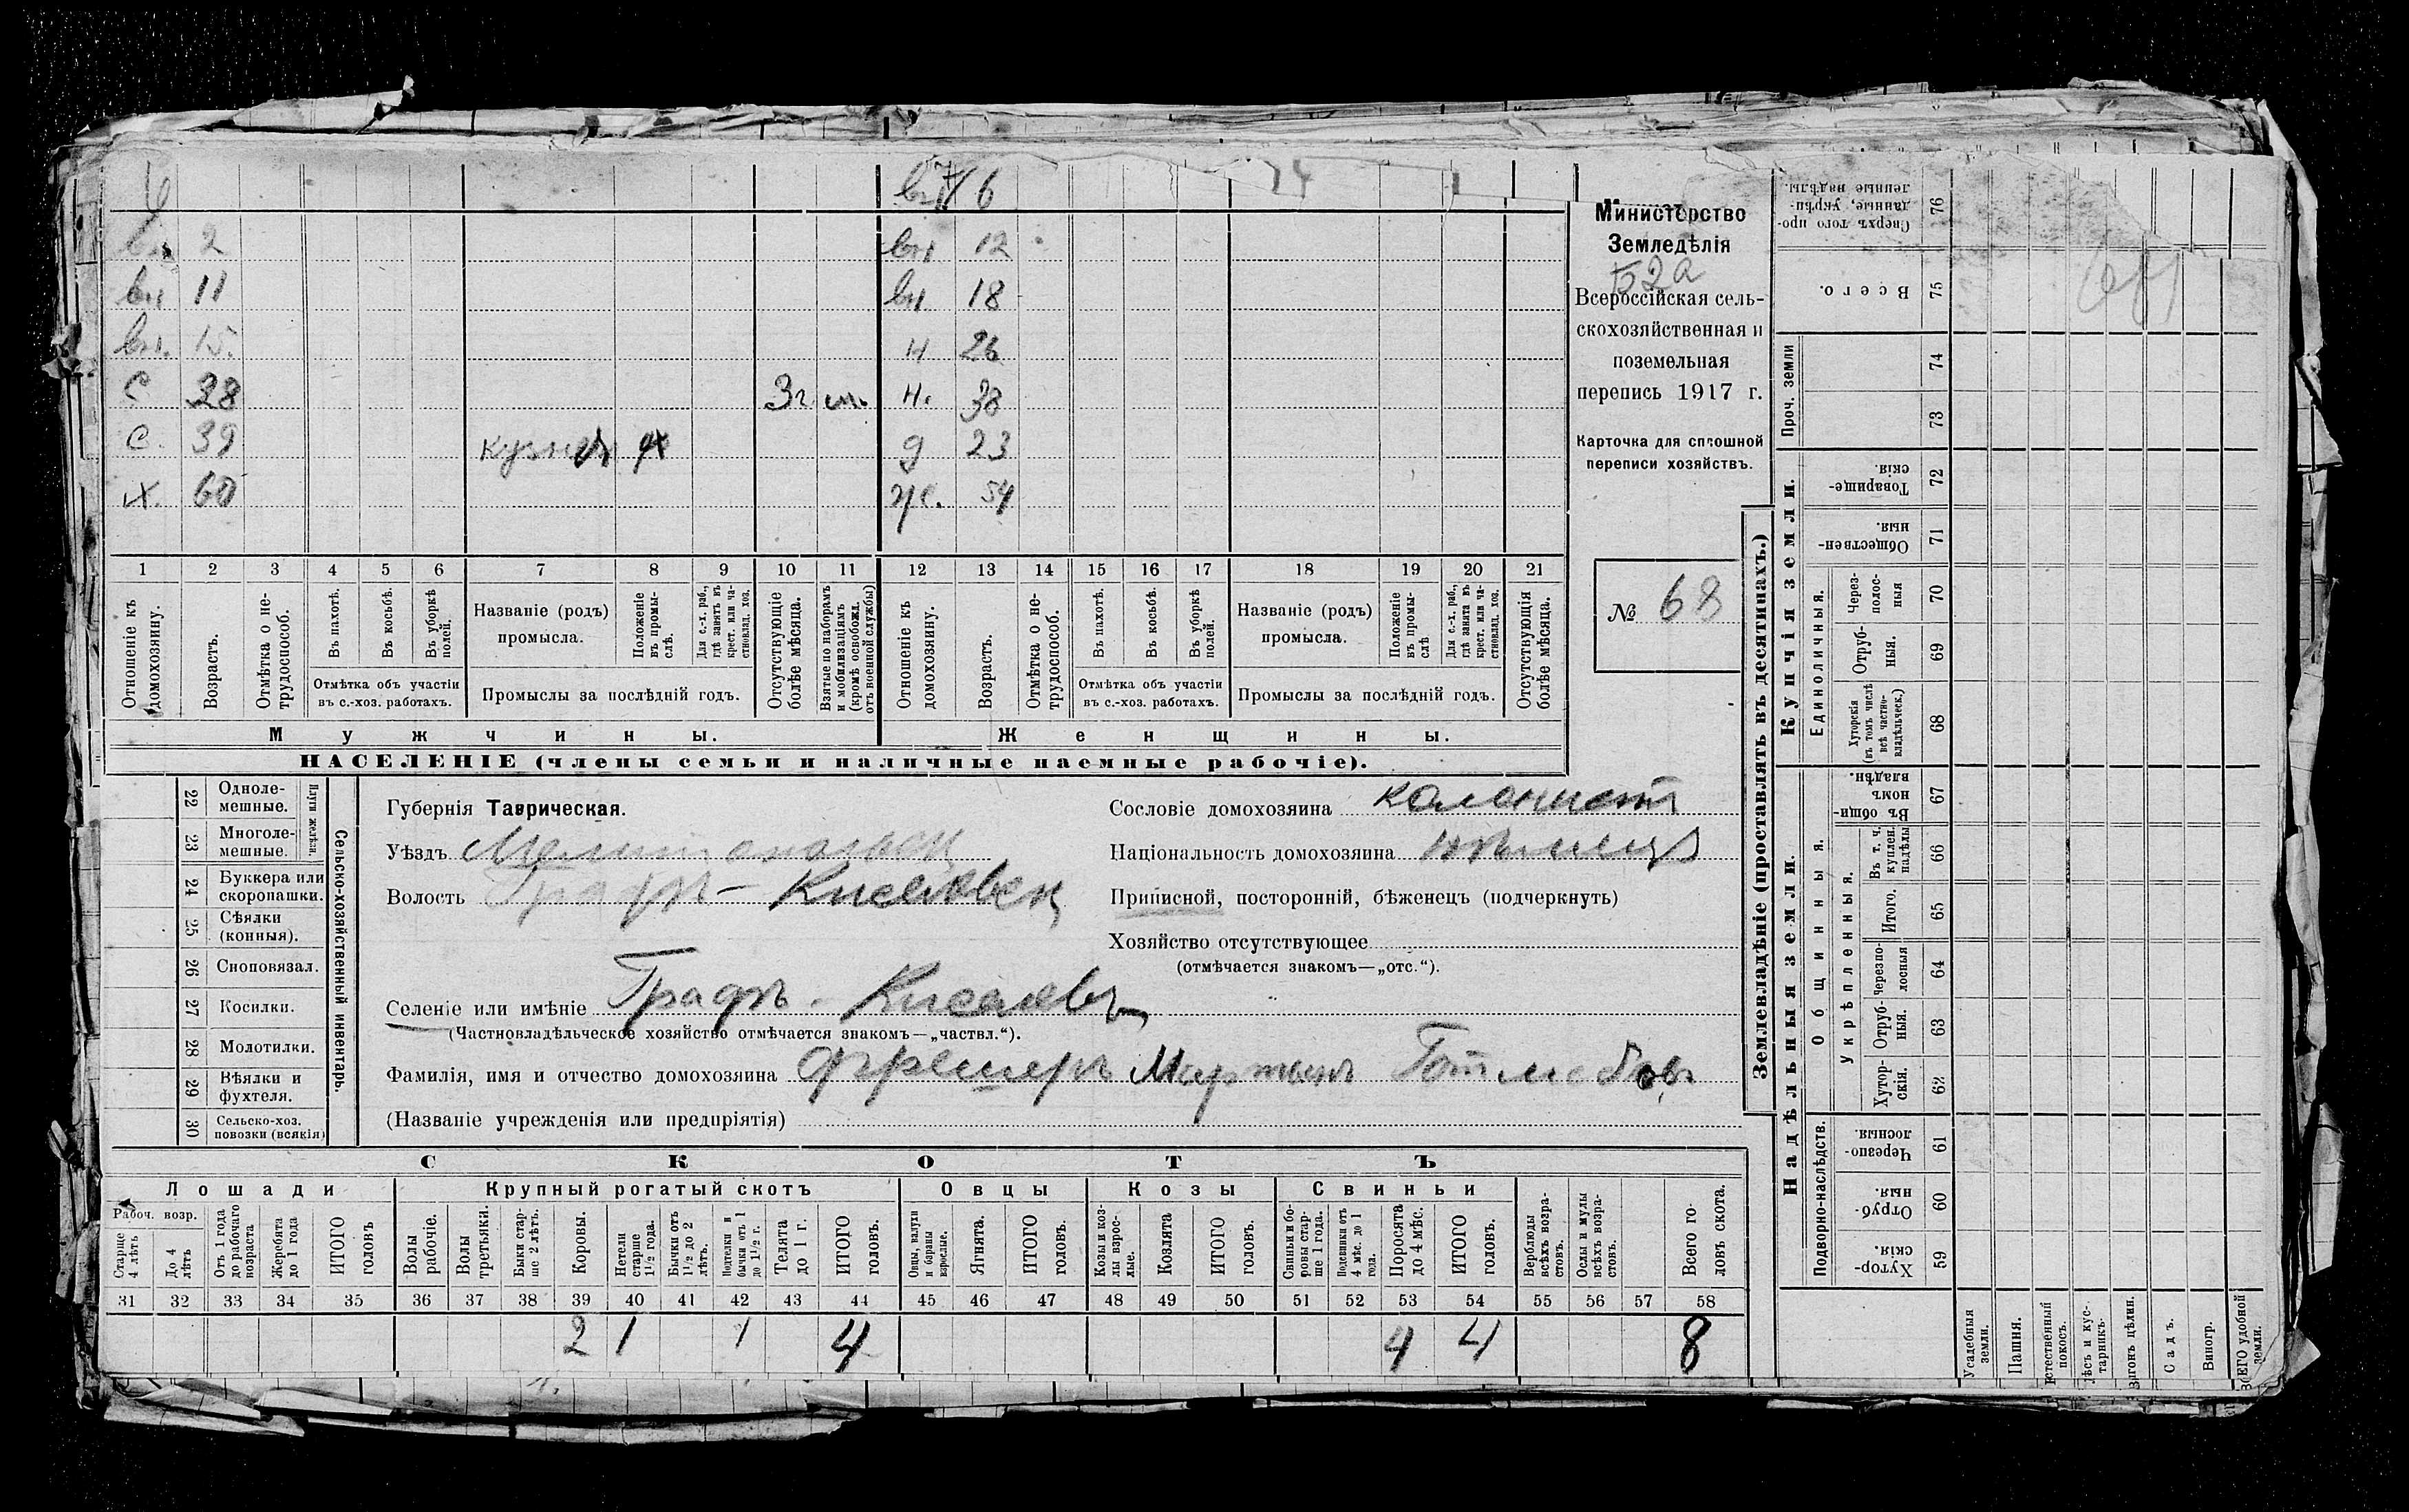 6 вн 7 6 14
вн. 2 вн 12
вн 11 вн. 18
вн. 15. н 26
С 28 3 г. м. н. 38
С. 39 кузнец д 23
х. 60 ж. 54
1 2 3 4 5 6 7 8 9 10 11 12 13 14 15 16 17 18 19 20 21
Отношеніе къ домохозяину.
Возрастъ.
Отмѣтка о нетрудоспособ.
Въ пахотѣ.
Въ косьбѣ.
Въ уборкѣ полей.
Отмѣтка объ участіи въ с.-хоз. работахъ.
Названіе (родъ) промысла.
Положеніе въ промыслѣ.
Для с.-х. раб., гдѣ занятъ въ крест. или частновлад. хоз.
Промыслы за послѣдній годъ.
Отсутствующіе болѣе мѣсяца.
Взятые по наборамъ и мобилизаціямъ (кромѣ освобожд. отъ военной службы)
Отношеніе къ домохозяину.
Возрастъ.
Отмѣтка о нетрудоспособ.
Въ пахотѣ.
Въ косьбѣ.
Въ уборкѣ полей.
Отмѣтка объ участіи въ с.-хоз. работахъ.
Названіе (родъ) промысла.
Положеніе въ промыслѣ
Для с.-х. раб., гдѣ занята въ крест. или частновлад. хоз.
Промыслы за послѣдній годъ.
Отсутствующія болѣе мѣсяца.
Мужчины.
Женщины.
НАСЕЛЕНІЕ (члены семьи и наличные наемные рабочіе).
Министерство
Земледѣлія
52а
Всероссійская сель-
скохозяйственная и
поземельная
перепись 1917 г.
Карточка для сплошной
переписи хозяйствъ.
№ 68
22 Одноле-
мешные.
23 Многоле-
мешные.
Плуги желѣзн.
24 Буккера или
скоропашки.
25 Сѣялки
(конныя).
26 Сноповязал.
27 Косилки.
28 Молотилки.
29 Вѣялки и
фухтеля.
30 Сельско-хоз.
повозки (всякія)
Сельско-хозяйственный инвентарь.
Губернія Таврическая.
Уѣздъ Мелитопольск
Волость Графъ-Киселевск
Селеніе или имѣніе Графъ-Киселевъ
(Частновладѣльческое хозяйство отмѣчается знакомъ—„частвл.“).
Фамилія, имя и отчество домохозяина Фрешеръ Мартынъ Готлибовъ
(Названіе учрежденія или предпріятія)
Сословіе домохозяина колонистъ
Національность домохозяина нѣмецъ
Приписной, посторонній, бѣженецъ (подчеркнуть)
Хозяйство отсутствующее
(отмѣчается знакомъ—„отс.“).
СКОТЪ
Лошади
Крупный рогатый скотъ
Овцы
Козы
Свиньи
Рабоч. возр.
Старше 4 лѣтъ
До 4 лѣтъ
Отъ 1 года до рабочаго возраста
Жеребята до 1 года
ИТОГО головъ
Волы рабочіе.
Волы третьяки.
Быки старше 2 лѣтъ.
Коровы.
Нетели старше 1½ года.
Бычки отъ 1½ до 2 лѣтъ.
Подтелки и бычки отъ 1 до 1½ г.
Телята до 1 г.
ИТОГО головъ.
Овцы, валухи и бараны взрослые.
Ягнята.
ИТОГО головъ.
Козы и козлы взрослые.
Козлята
ИТОГО головъ.
Свиньи и боровы старше 1 года.
Подсвинки отъ 4 мѣс. до 1 года.
Поросята до 4 мѣс.
ИТОГО головъ.
Верблюды всѣхъ возрастовъ.
Ослы и мулы всѣхъ возрастовъ.
Всего головъ скота.
31 32 33 34 35 36 37 38 39 40 41 42 43 44 45 46 47 48 49 50 51 52 53 54 55 56 57 58
2 1 1 4 4 4 8
Землевладѣніе (проставлять въ десятинахъ.)
Купчія земли.
Надѣльныя земли.
Сверхъ того проданные, укрѣпленные надѣлы. 76
Всего. 75
Проч. земли 74
73
Товарищескія. 72
Общественныя. 71
Единоличныя.
Черезполосныя 70
Отрубныя. 69
Хуторскія (въ томъ числѣ всѣ частновладѣльческ.) 68
Въ общинномъ владѣн. 67
Общинныя.
Укрѣпленныя.
Въ т. ч. куплен. надѣлы 66
Итого. 65
Черезполосныя 64
Отрубныя. 63
Хуторскія. 62
Подворно-наслѣдств.
Черезполосныя. 61
Отрубныя. 60
Хуторскія. 59
Усадебныя земли.
Пашня.
Естественный покосъ.
Лѣсъ и кустарникъ.
Выгонъ цѣлин.
Садъ.
Виногр.
ВСЕГО удобной земли.